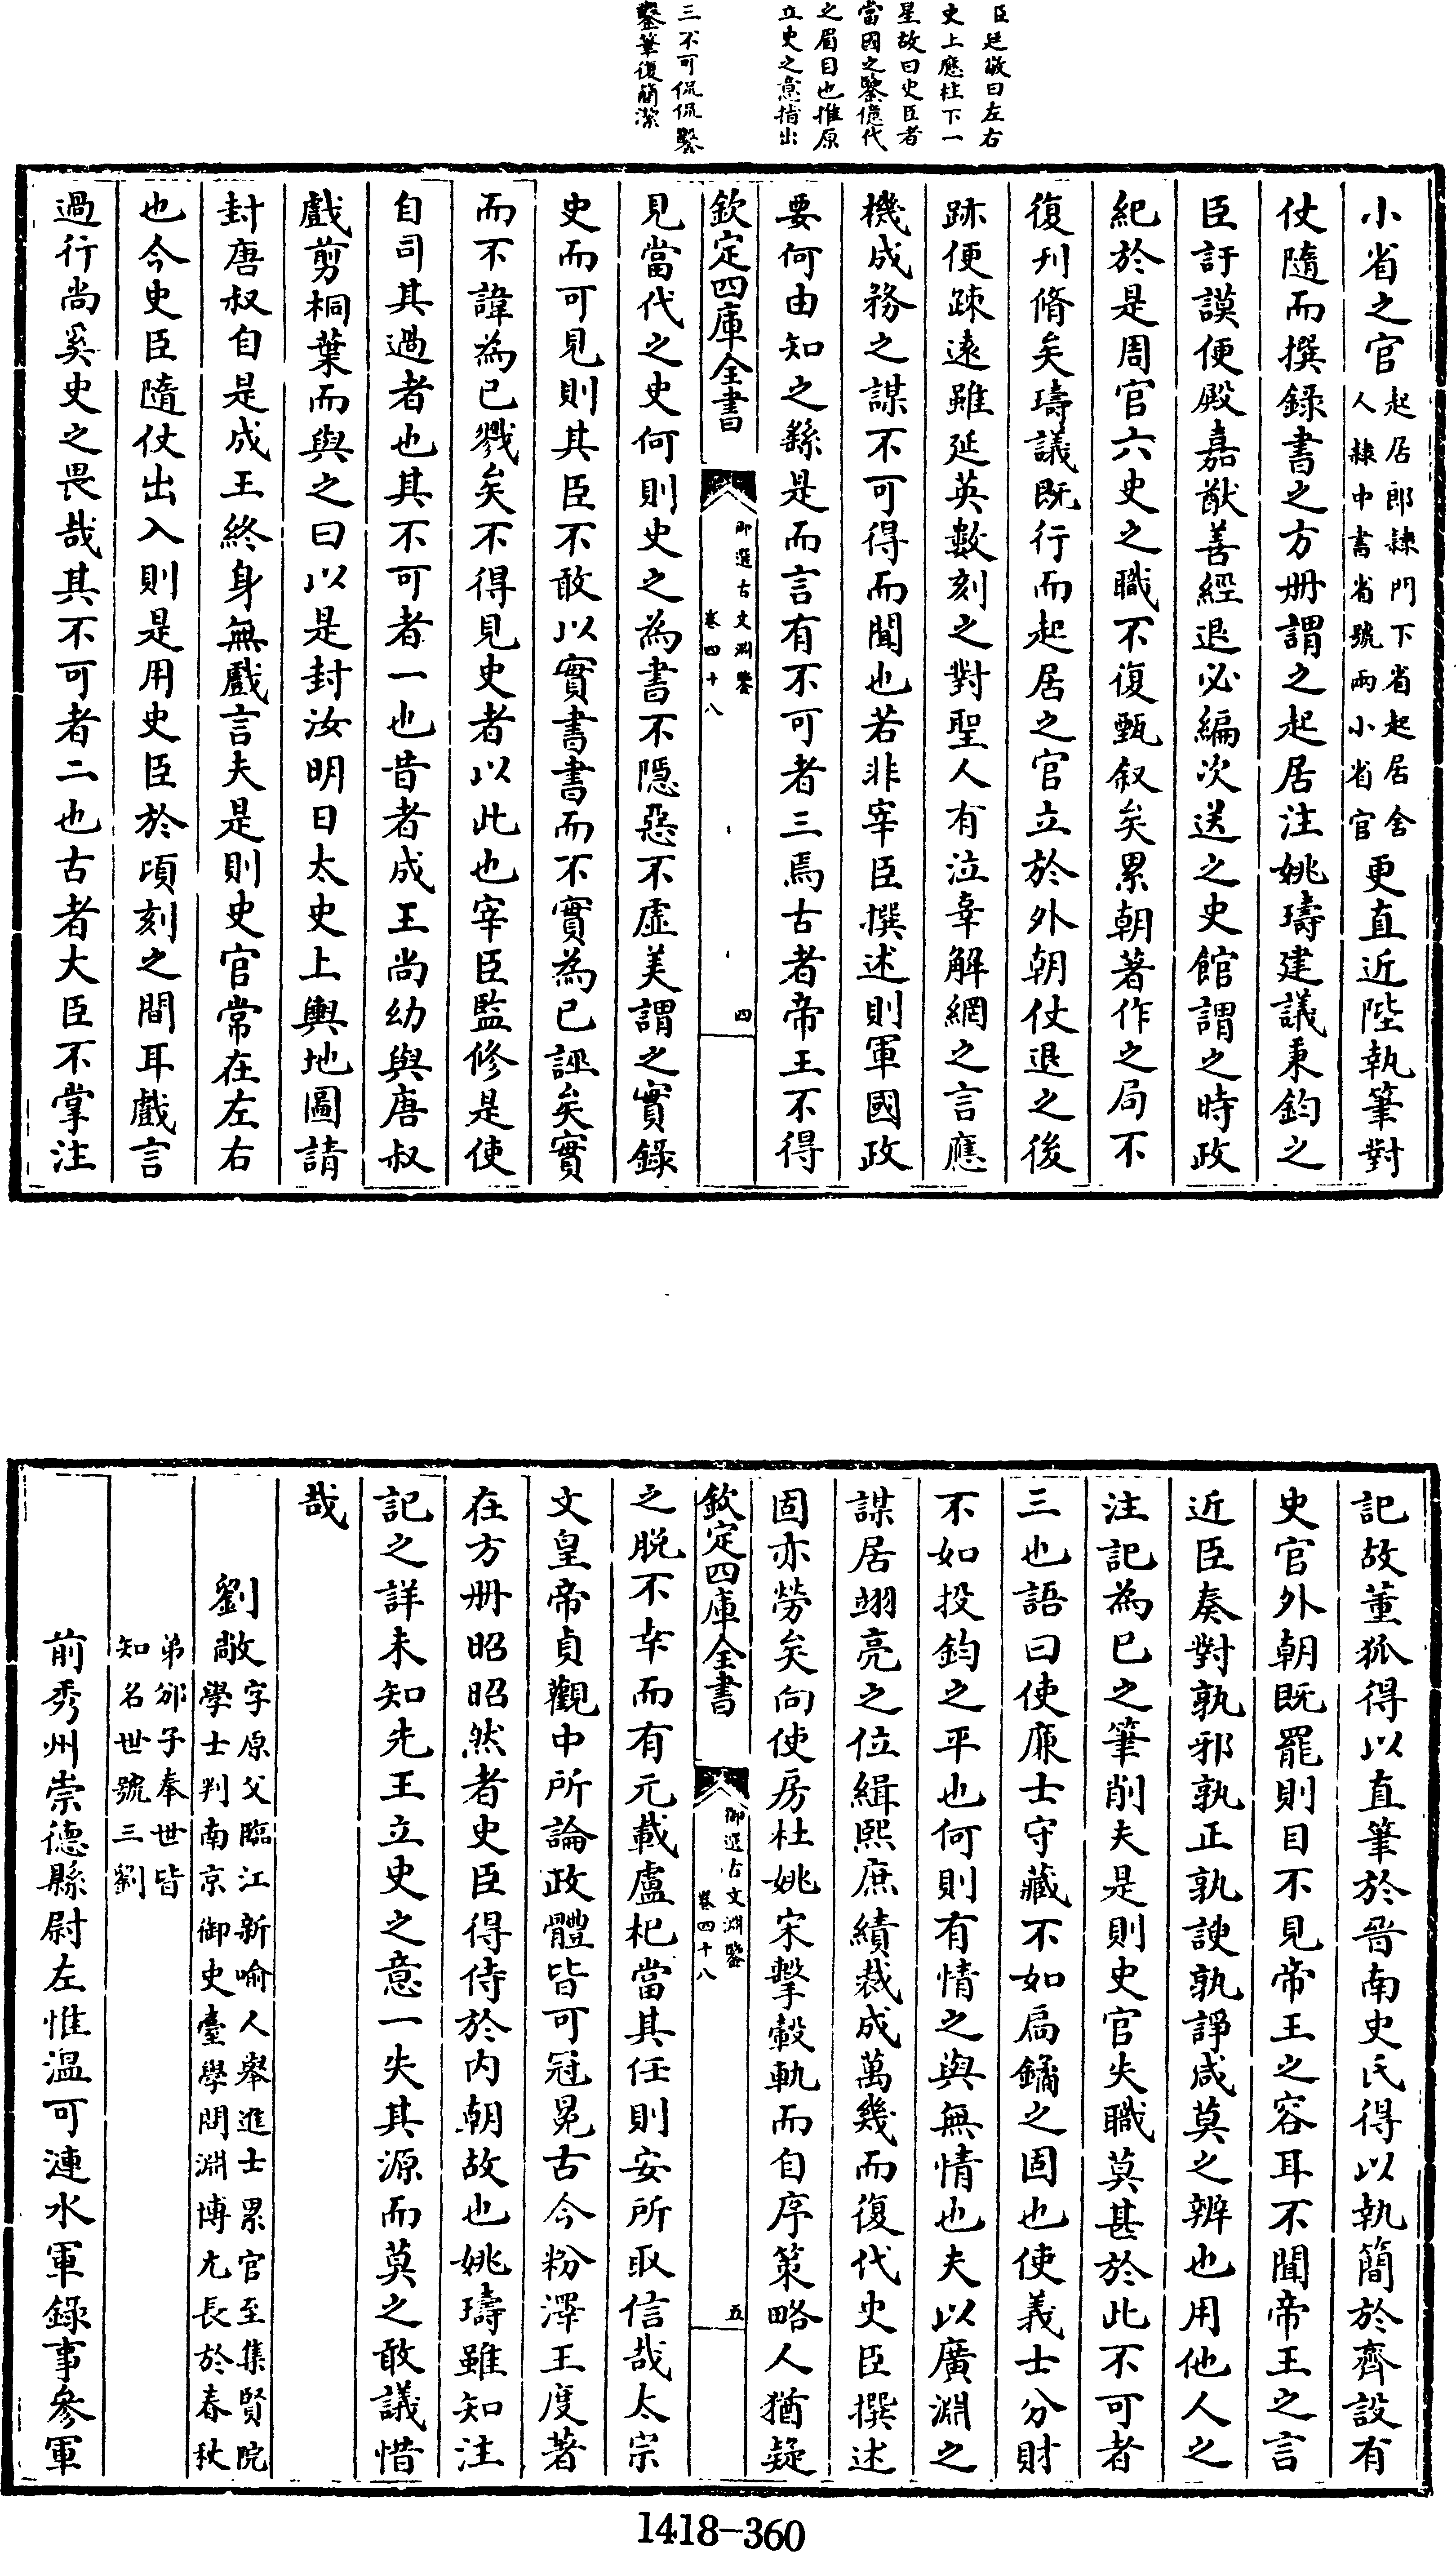 臣廷敬曰左右
史上應柱下一
星故曰史臣者
當國之鑒億代
之眉目也推原
立史之意指出
三不可侃侃鑿
鑿筆復簡潔
小省之官起居郎隸門下省起居舍人隸中書省號兩小省官更直近陛執筆對
仗隨而撰錄書之方冊謂之起居注姚璹建議秉鈞之
臣訏謨便殿嘉猷善經退必編次送之史館謂之時政
紀於是周官六史之職不復甄叙矣累朝著作之局不
復刋脩矣璹議既行而起居之官立於外朝仗退之後
跡便疎遠雖延英數刻之對聖人有泣辜解網之言應
機成務之謀不可得而聞也若非宰臣撰述則軍國政
要何由知之繇是而言有不可者三焉古者帝王不得
欽定四庫全書
御選古文淵鑒
卷四十八
四
見當代之史何則史之為書不隱惡不虛美謂之實錄
史而可見則其臣不敢以實書書而不實為已誣矣實
而不諱為已戮矣不得見史者以此也宰臣監修是使
自司其過者也其不可者一也昔者成王尚幼與唐叔
戲剪桐葉而與之曰以是封汝明日太史上輿地圖請
封唐叔自是成王終身無戲言夫是則史官常在左右
也今史臣隨仗出入則是用史臣於頃刻之間耳戲言
過行尚奚史之畏哉其不可者二也古者大臣不掌注
記故董狐得以直筆於晉南史氏得以執簡於齊設有
史官外朝既罷則目不見帝王之容耳不聞帝王之言
近臣奏對孰邪孰正孰諛孰諍咸莫之辨也用他人之
注記為已之筆削夫是則史官失職莫甚於此不可者
三也語曰使廉士守藏不如扃鐍之固也使義士分財
不如投鈞之平也何則有情之與無情也夫以廣淵之
謀居翊亮之位緝熙庶績裁成萬幾而復代史臣撰述
固亦勞矣向使房杜姚宋擊轂軌而自序策略人猶疑
欽定四庫全書
御選古文淵鑒
卷四十八
五
之脫不幸而有元載盧杞當其任則安所取信哉太宗
文皇帝貞觀中所論政體皆可冠冕古今粉澤王度著
在方冊昭昭然者史臣得侍於內朝故也姚璹雖知注
記之詳未知先王立史之意一失其源而莫之敢議惜
哉
劉敞字原父臨江新喻人舉進士累官至集賢院學士判南京御史臺學問淵博尤長於春秋
弟邠子奉世皆知名世號三劉
前秀州崇德縣尉左惟溫可漣水軍錄事參軍
1418-360